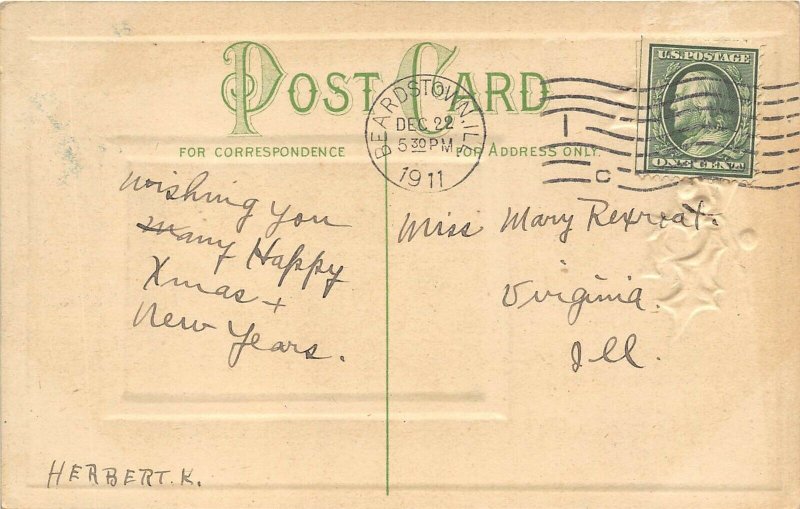 POST CARD
U.S. POSTAGE
ONE CENT
BEARDSTOWN, ILL.
DEC 22
5 30 PM
1911
1
C
FOR CORRESPONDENCE
FOR ADDRESS ONLY.
Wishing you
many Happy
Xmas +
New Years.
HERBERT. K.
Miss Mary Rexroat.
Virginia.
Ill.